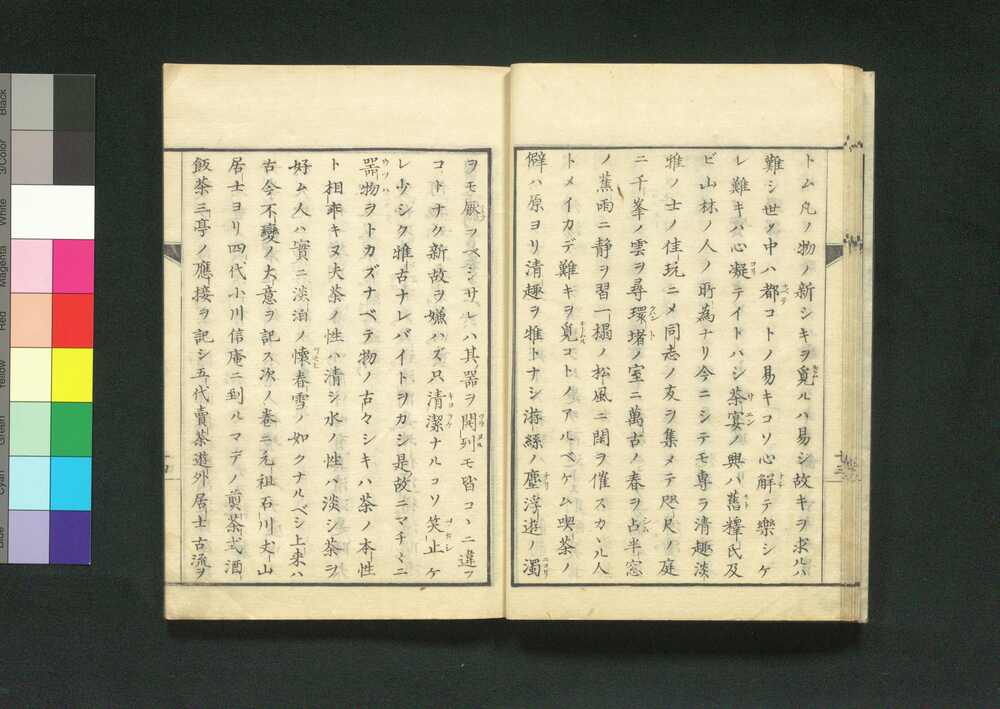 トム凡ノ物ノ新シキヲ覓ルハ易シ故キヲ求ルハ
難シ世ノ中ハ都コトノ易キコソ心解テ樂シケ
レ難キハ心凝テイトハシ茶宴ノ興ハ舊釋氏及
ビ山林ノ人ノ所為ナリ今ニシテモ專ラ清趣淡
雅ノ士ノ佳玩ニメ同志ノ友ヲ集メテ咫尺ノ庭
ニ千峯ノ雲ヲ尋環堵ノ室ニ萬古ノ春ヲ占半窓
ノ蕉雨ニ静ヲ習一榻ノ松風ニ閑ヲ催スカヽル人
トメイカデ難キヲ覓コトノアルベケム喫茶ノ
僻ハ原ヨリ清趣ヲ雅トナシ游絲ノ塵浮遊ノ濁
ヲモ厭フベシサレハ其ノ器ヲ閲列モ皆コヽニ違フ
コトナク新故ヲ嫌ハズ只清潔ナルコソ笑止ケ
レ少シク雅古ナレバイトヲカシ是故ニマチヽニ
器物ヲトカズナベテ物ノ古々シキハ茶ノ本性
ト相乖キヌ夫茶ノ性ハ清シ水ノ性ハ淡シ茶ヲ
好ム人ハ實ニ淡泊ノ懐春雪ノ如クナルベシ上来ハ
古今不變ノ大意ヲ記ス次ノ巻ニ元祖石川丈山
居士ヨリ四代小川信庵ニ到ルマデノ煎茶式酒
飯茶三亭ノ應接ヲ記シ五代賣茶遊外居士古流ヲ
Black
3/Color
White
Magenta
Red
Yellow
Green
Cyan
Blue